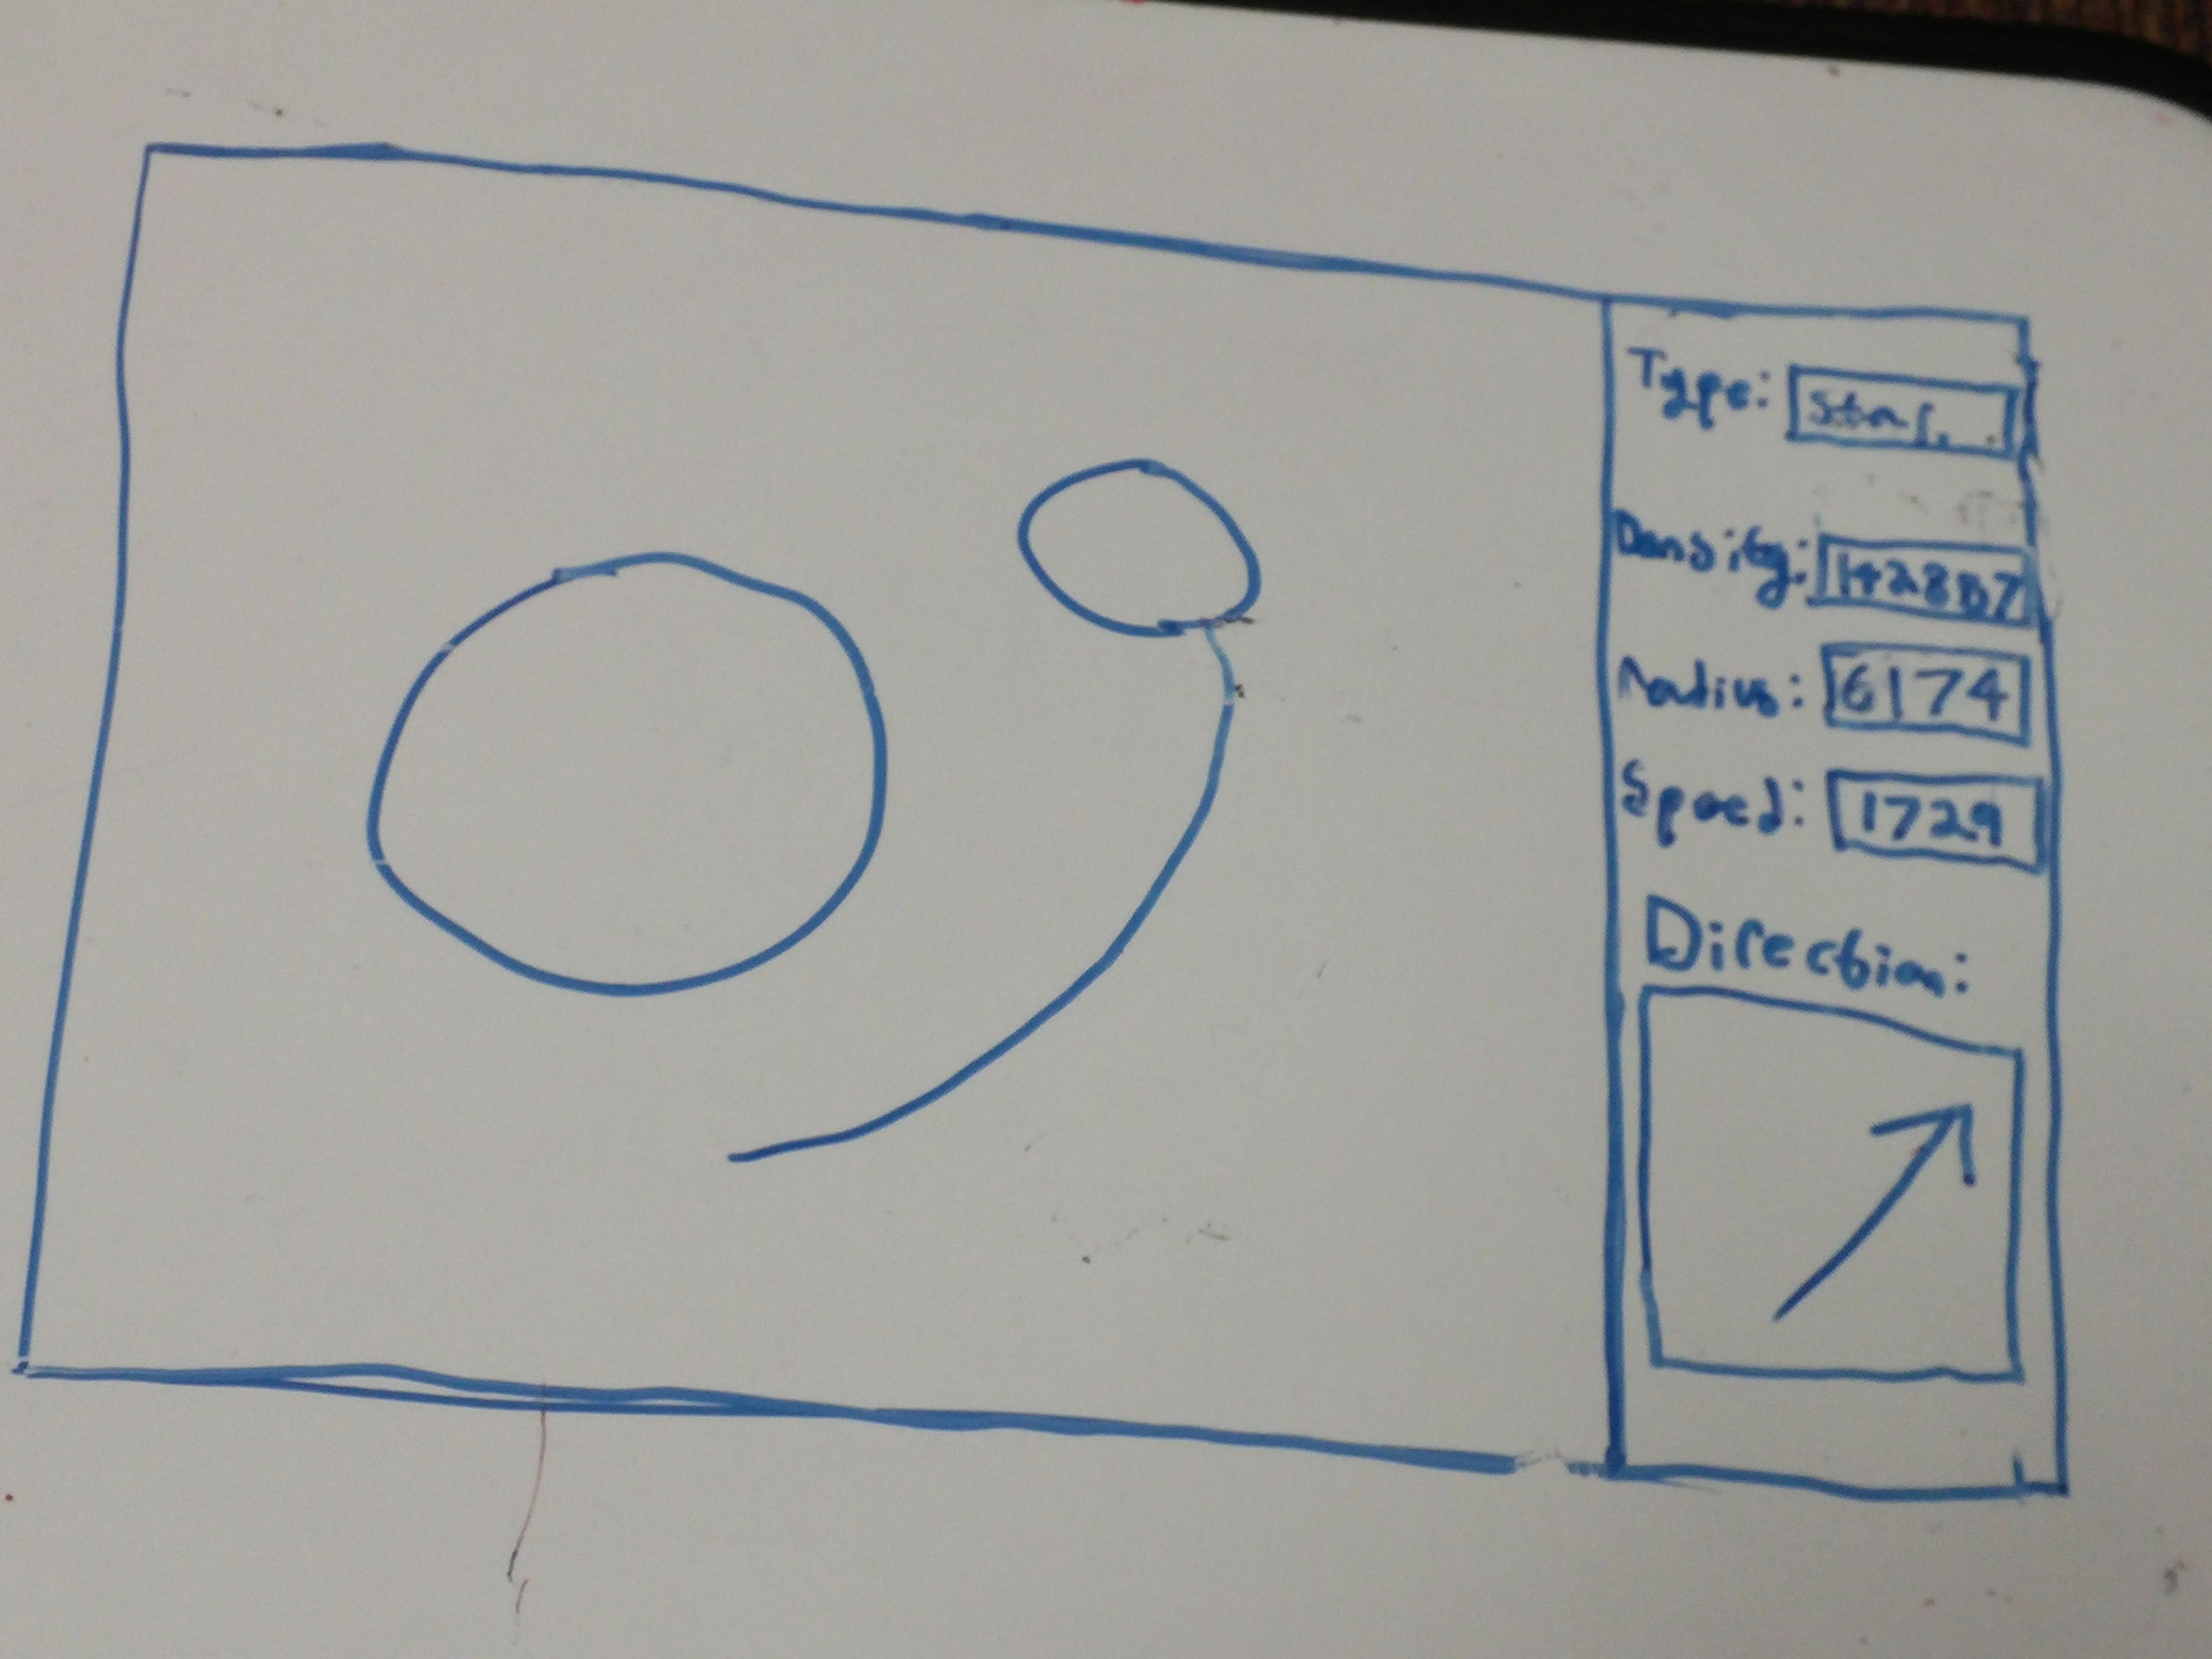 Type: Star
Density: 142857
Radius: 6174
Speed: 1729
Direction: